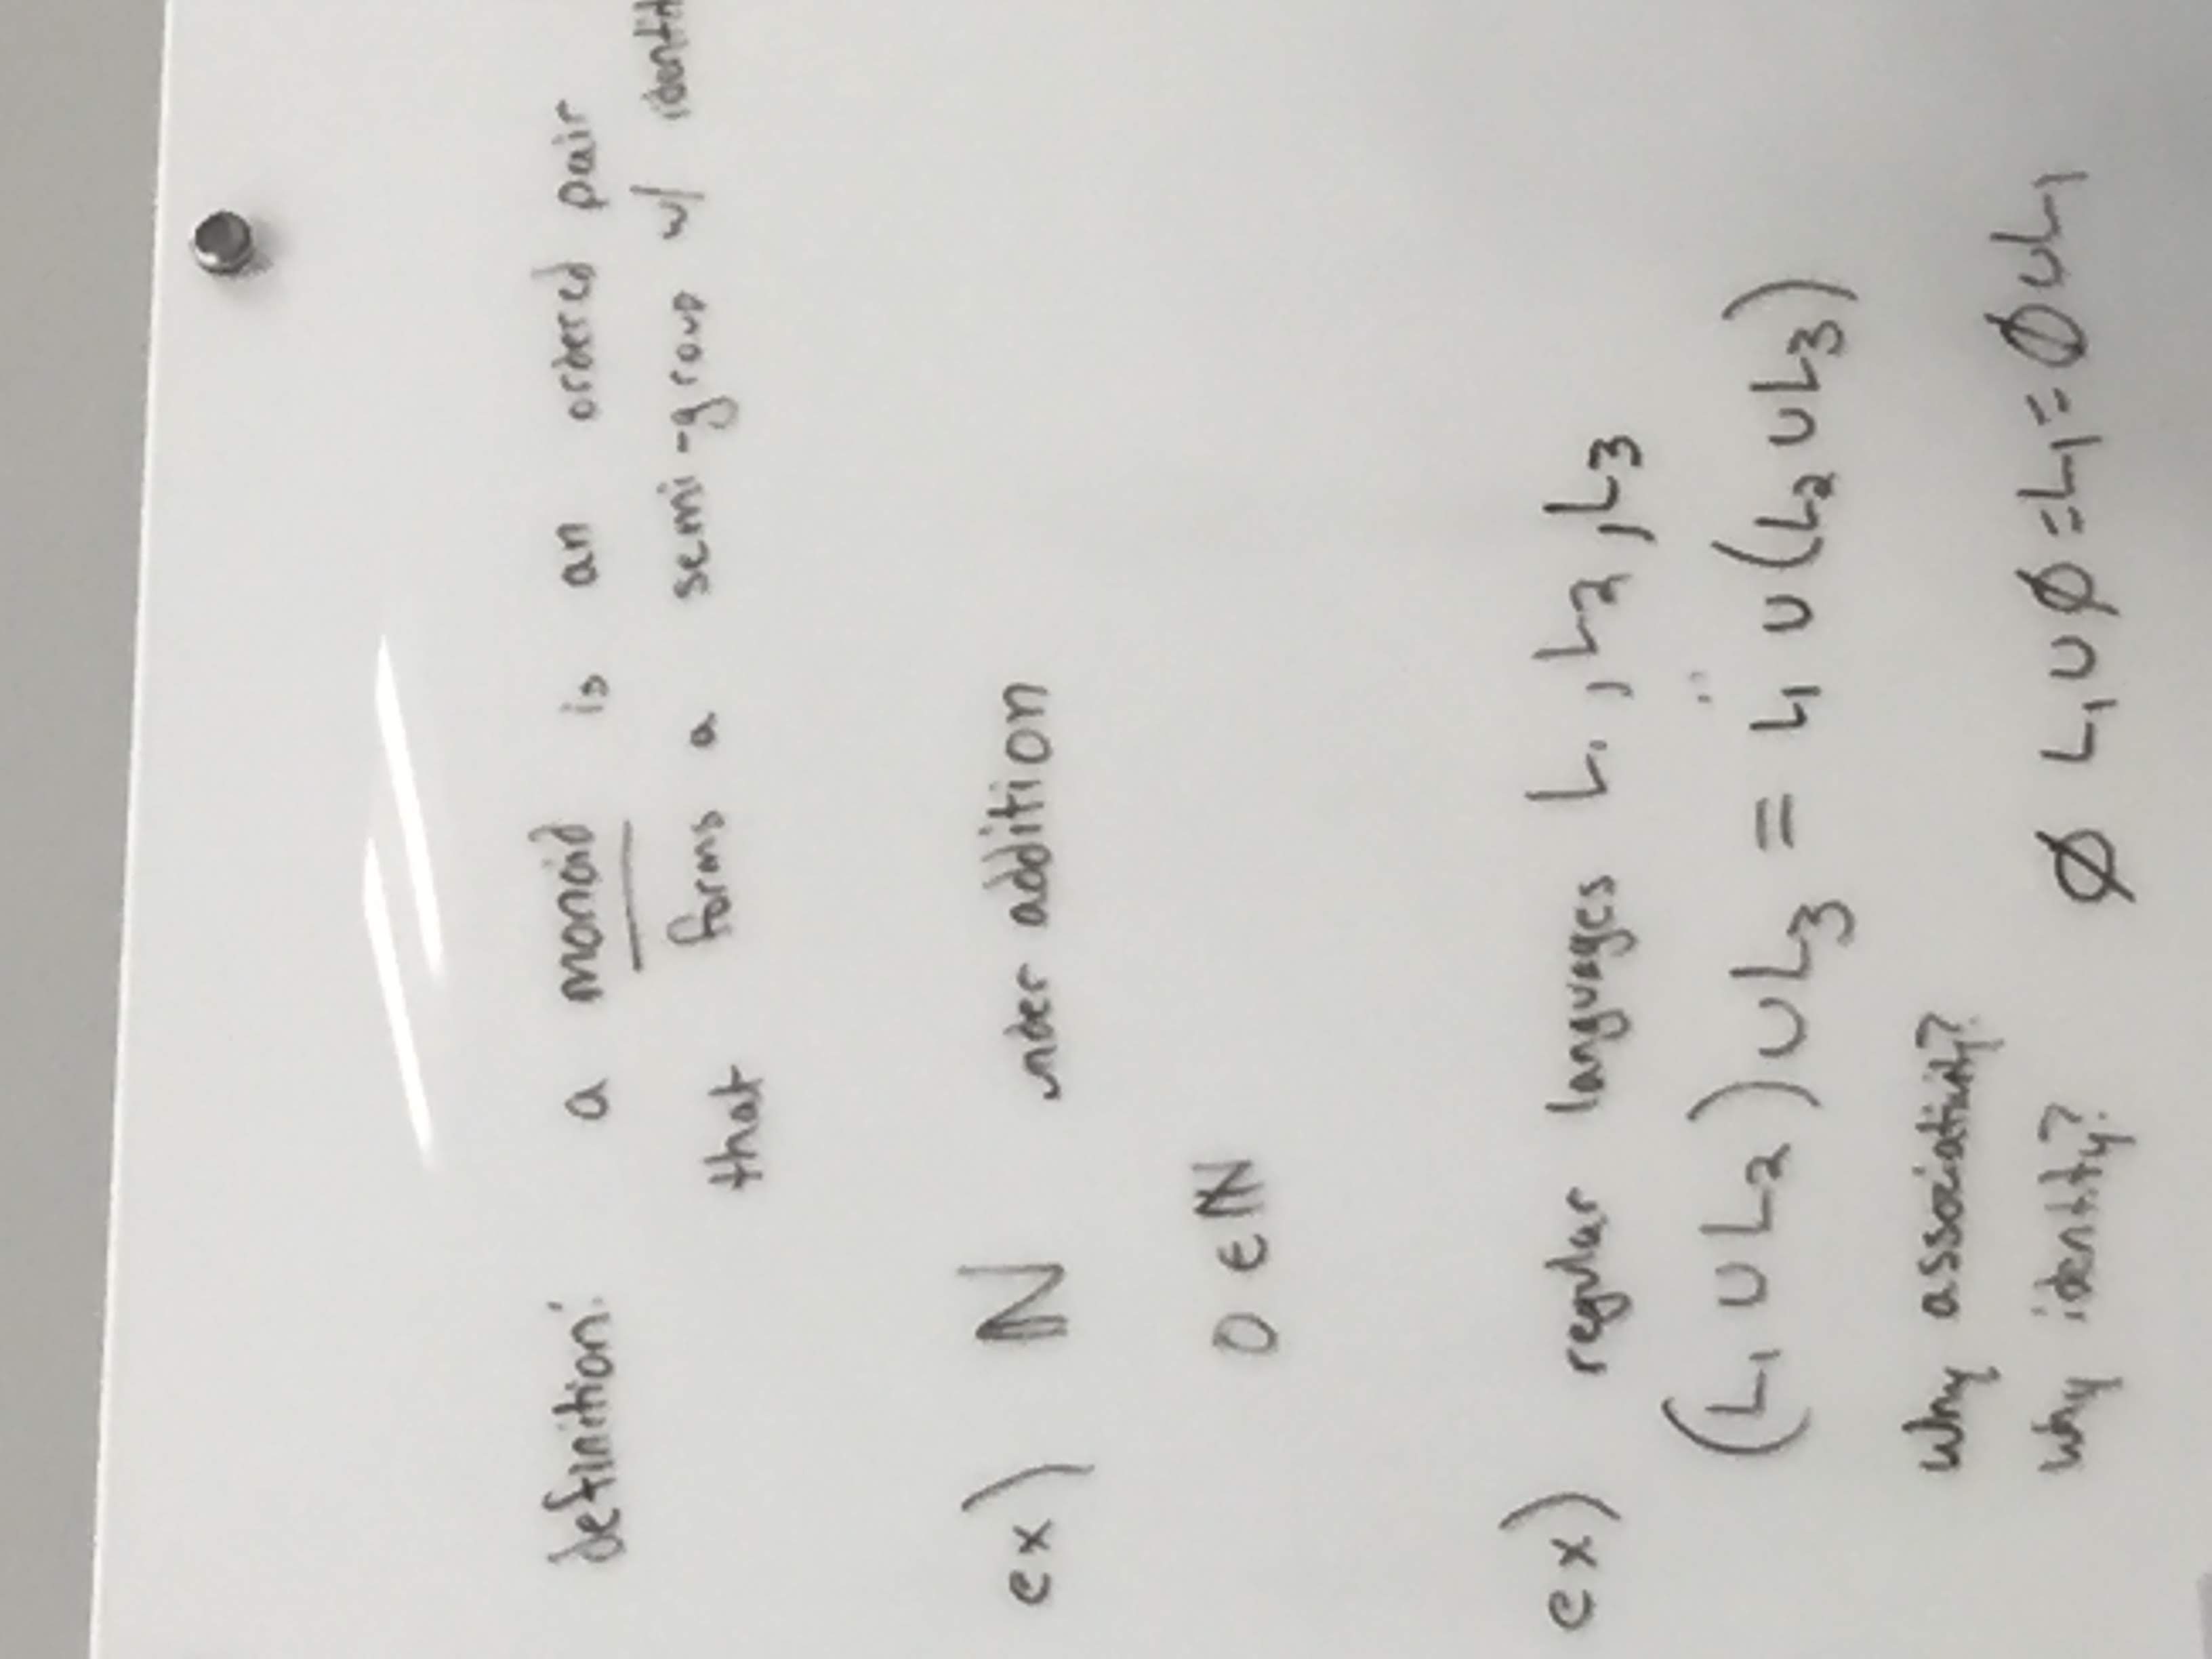 definition: a monoid is an ordered pair
that forms a semi-group w/ identit
ex) ℕ under addition
0 ∈ ℕ
ex) regular languages L₁, L₂, L₃
(L₁ ∪ L₂) ∪ L₃ = L₁ ∪ (L₂ ∪ L₃)
Why associativity?
Why identity? ∅ L₁ ∪ ∅ = L₁ = ∅ ∪ L₁